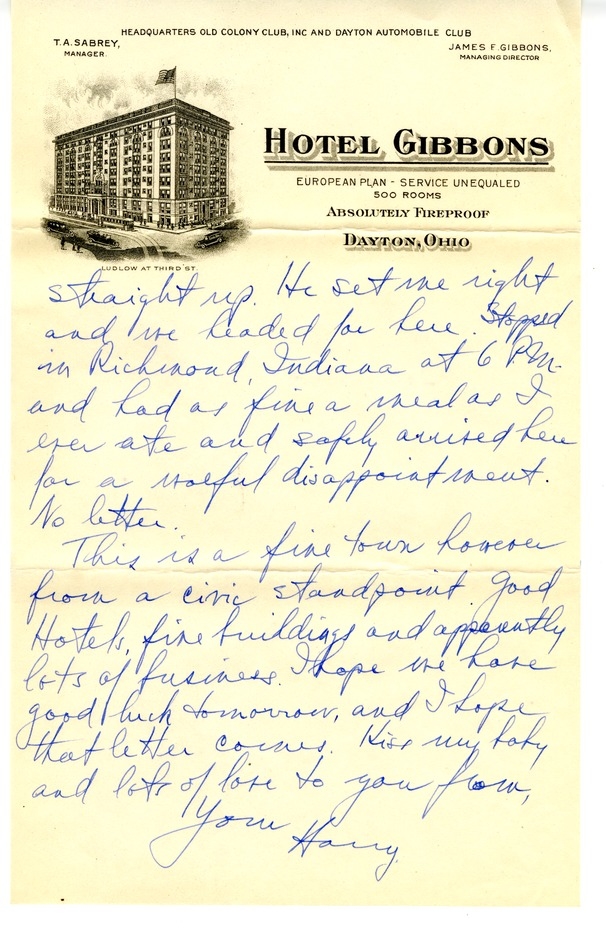 HEADQUARTERS OLD COLONY CLUB, INC AND DAYTON AUTOMOBILE CLUB
T. A. SABREY,
MANAGER.
JAMES F. GIBBONS,
MANAGING DIRECTOR
HOTEL GIBBONS
EUROPEAN PLAN - SERVICE UNEQUALED
500 ROOMS
ABSOLUTELY FIREPROOF
DAYTON, OHIO
LUDLOW AT THIRD ST.
straight up. He set me right
and we headed for here. Stopped
in Richmond, Indiana at 6 P.M.
and had as fine a meal as I
ever ate and safely arrived here
for a woeful disappointment.
No letter.
This is a fine town however
from a civic standpoint. Good
Hotels, fine buildings and apparently
lots of business. I hope we have
good luck tomorrow, and I hope
that letter comes. Kiss my baby
and lots of love to you from,
Your Harry